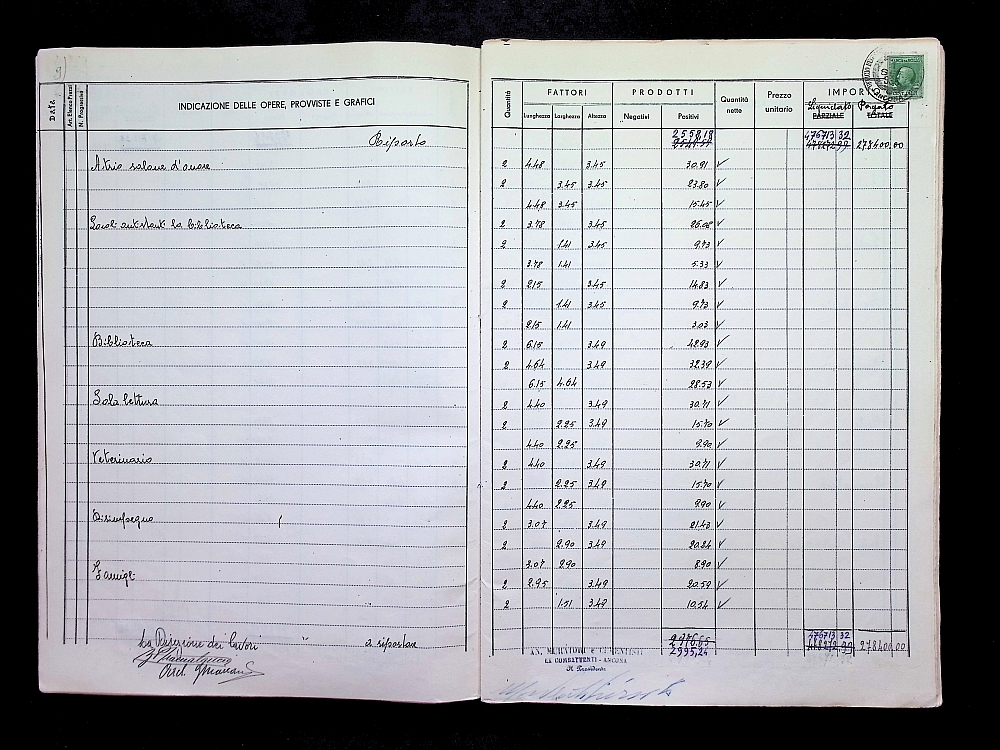 DATA
Art. Elenco Prezzi
N. Progressivo
INDICAZIONE DELLE OPERE, PROVVISTE E GRAFICI
Riporto
Atrio salone d'onore
la biblioteca
Biblioteca
Sala lettura
Veterinario
Disimpegno
La Direzione dei lavori " a riportare
Quantità
FATTORI
Lunghezza Larghezza Altezza
PRODOTTI
Negativi Positivi
Quantità nette
Prezzo unitario
Liquidato Pagato
PARZIALE TOTALE
2558,18 476713 32
278400,00
2 4.48 3.45 30.91 V
2 3.45 3.45 23.80 V
4.48 3.45 15.45 V
2 3.78 3.45 26.08 V
2 1.41 3.45 9.73 V
3.78 1.41 5.33 V
2 2.15 3.45 14.83 V
2 1.41 3.45 9.73 V
2.15 1.41 3.03 V
2 6.15 3.49 42.93 V
2 4.64 3.49 32.39 V
6.15 4.64 28.53 V
2 4.40 3.49 30.71 V
2 2.25 3.49 15.70 V
4.40 2.25 9.90 V
2 4.40 3.49 30.71 V
2 2.25 3.49 15.70 V
4.40 2.25 9.90 V
2 3.07 3.49 21.43 V
2 2.90 3.49 20.24 V
3.07 2.90 8.90 V
2 2.95 3.49 20.59 V
2 1.51 3.49 10.54 V
2976.65 476713 32
2995,24 278400,00
AN. MURATORI E CEMENTISTI
EX COMBATTENTI - ANCONA
Il Presidente